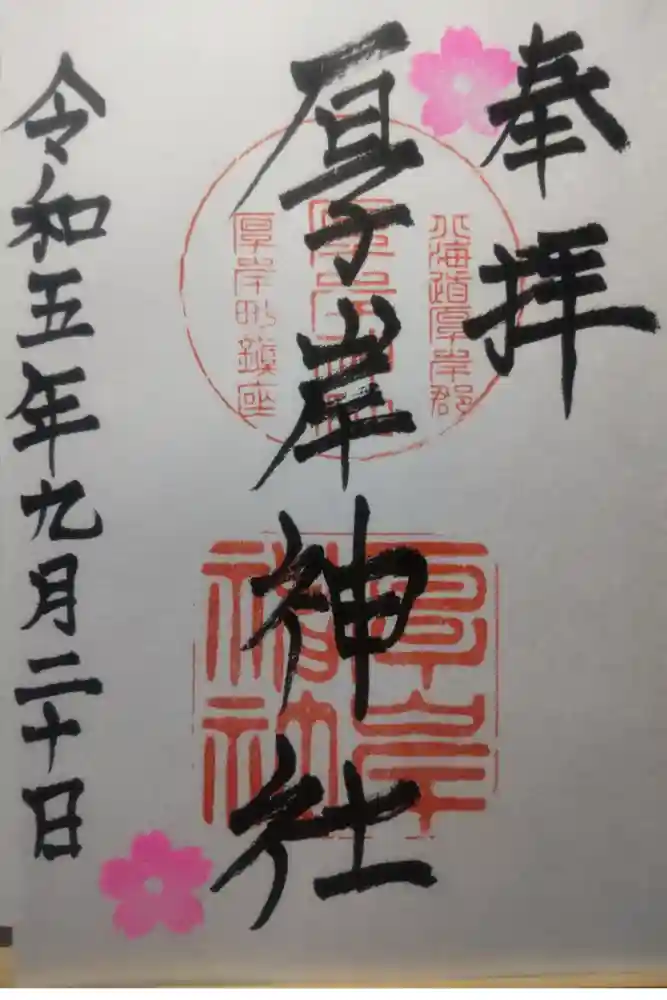 奉拝
厚岸神社
令和五年九月二十日
北海道厚岸郡
厚岸神社
厚岸町鎮座
厚岸
神社